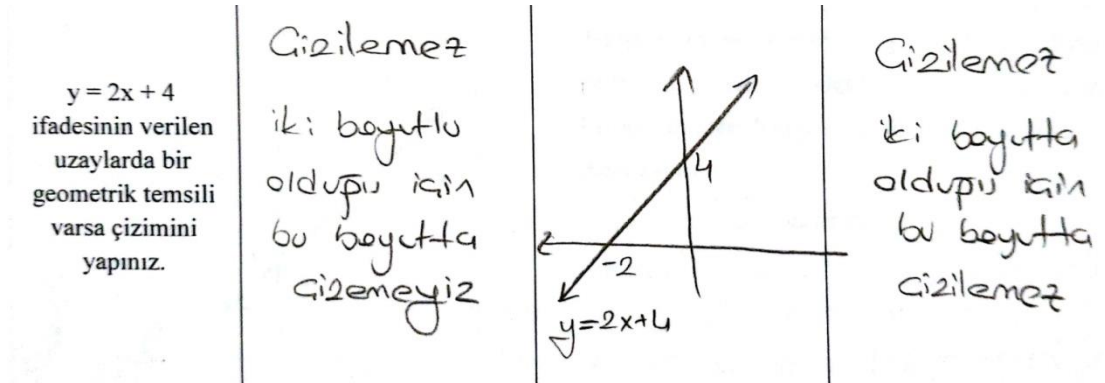 y = 2x + 4
ifadesinin verilen
uzaylarda bir
geometrik temsili
varsa çizimini
yapınız.
Çizilemez
iki boyutlu
olduğu için
bu boyutta
çizemeyiz
4
-2
y=2x+4
Çizilemez
iki boyutta
olduğu için
bu boyutta
çizilemez